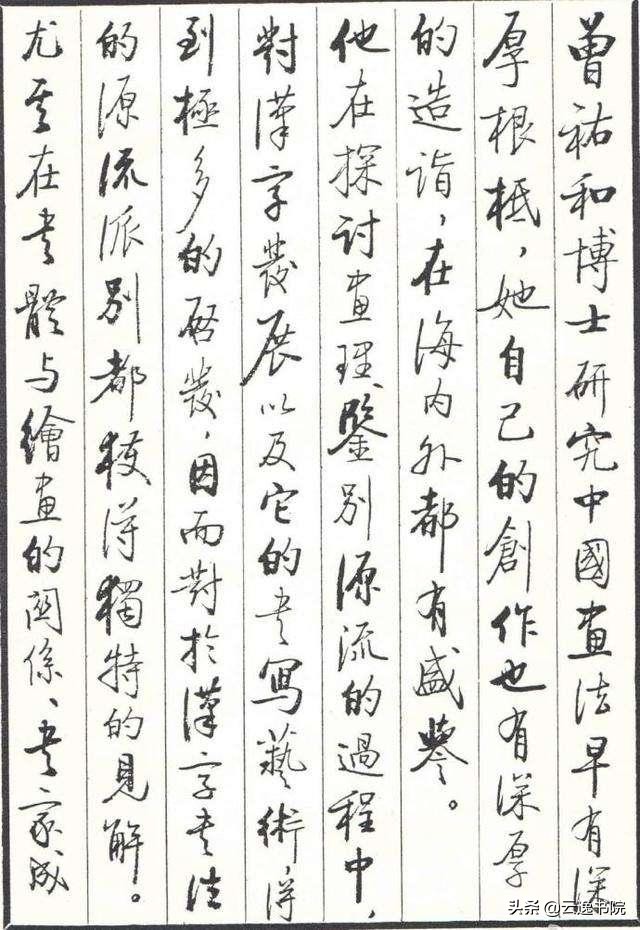 曾祐和博士研究中國畫法早有深
厚根柢，她自己的創作也有深厚
的造詣，在海内外都有盛譽。
他在探討畫理、鑒別源流的過程中，
對漢字發展以及它的书寫藝術，得
到極多的啓發，因而對於漢字书法
的源流派别都獲得獨特的見解。
尤其在书體与繪畫的関係、书家成
头条 @云逸书院